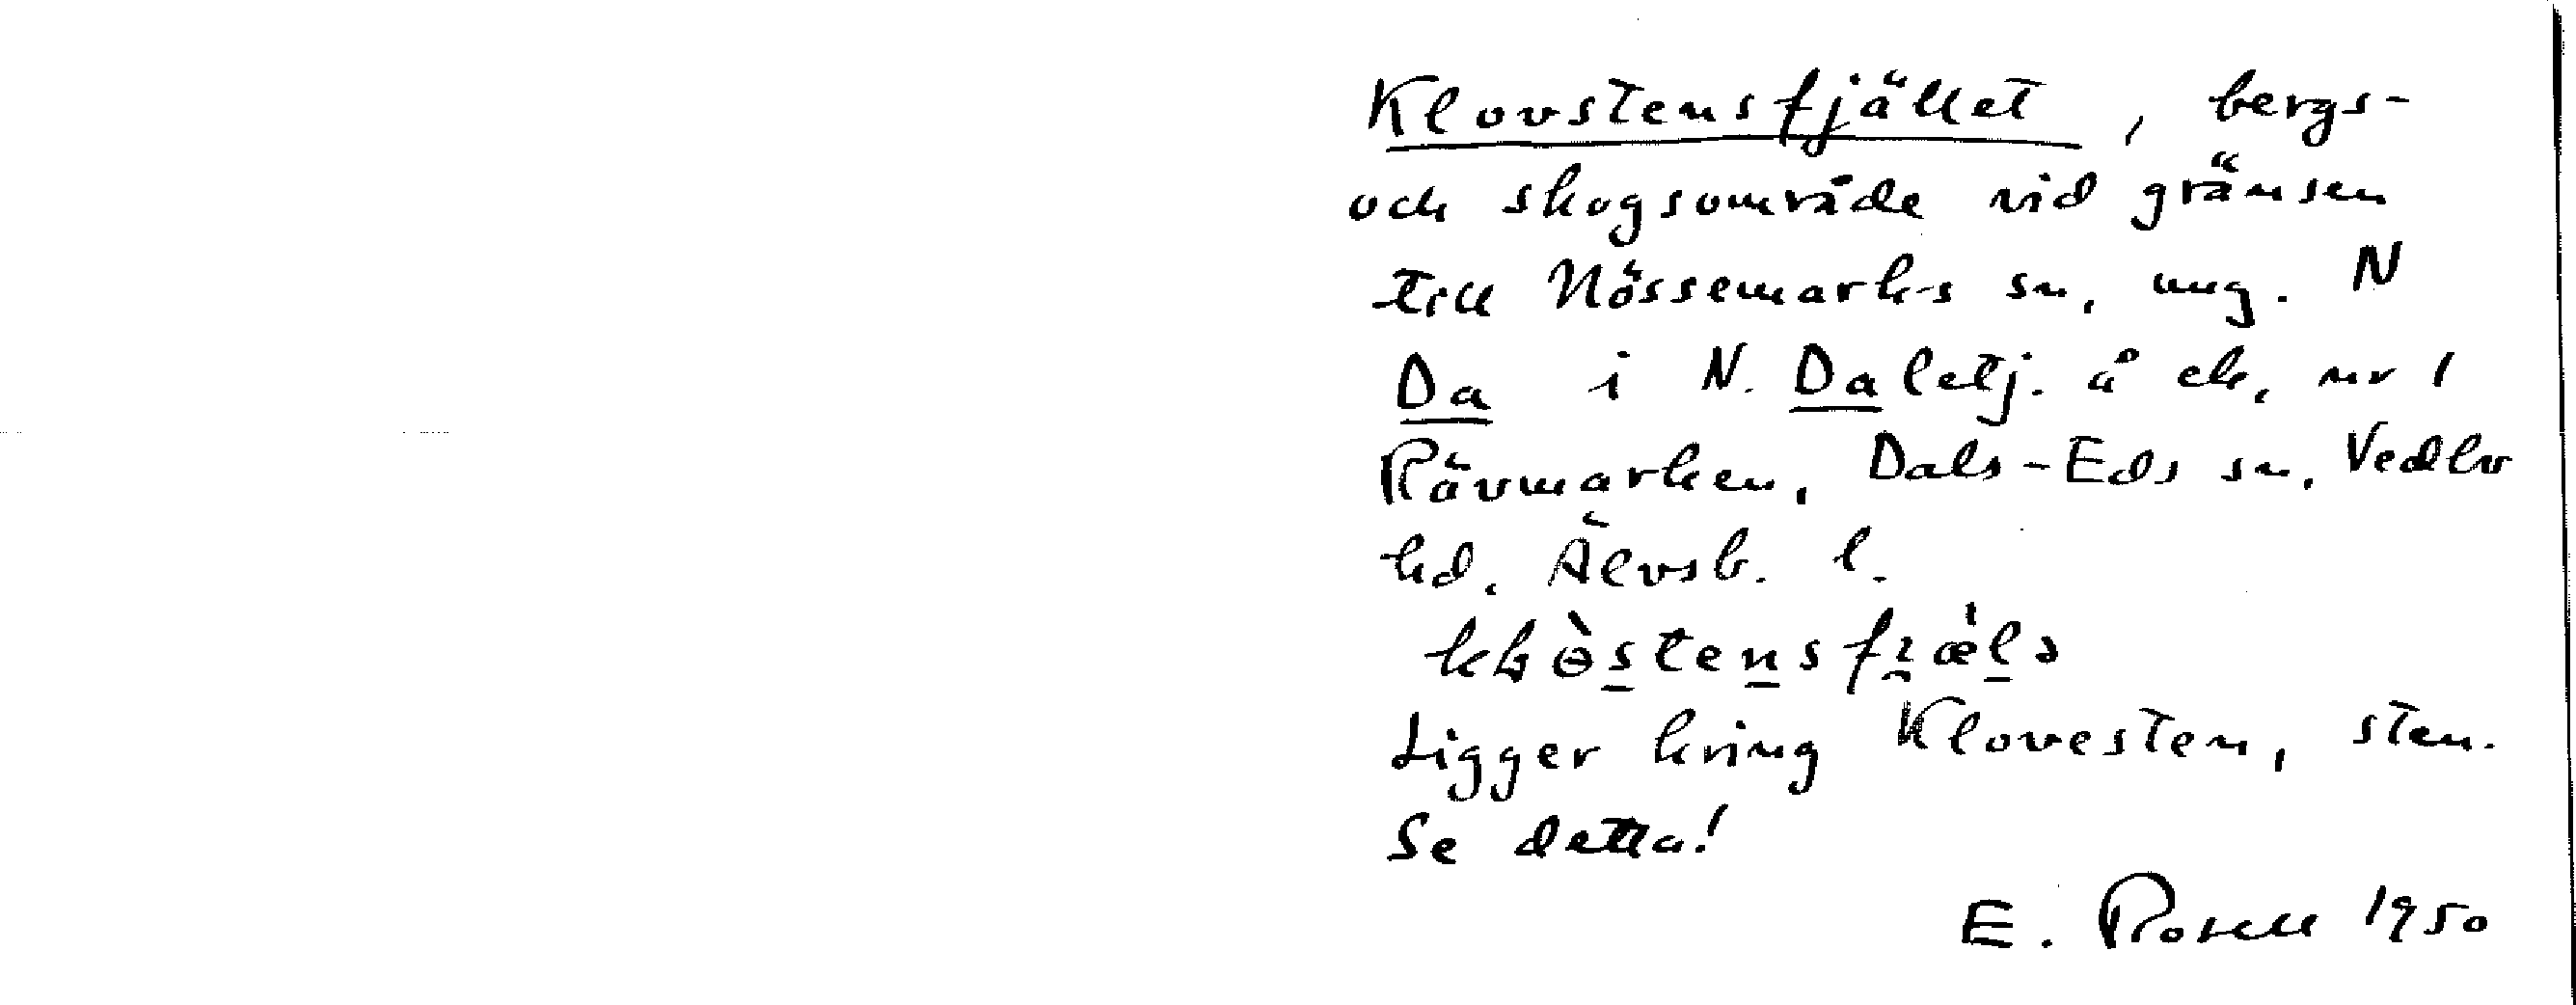 Klovstensfjället, bergs-
och skogsområde vid gränsen
till Nössemarks sn, ung. N
Da i N. Daletj. å ek. nr 1
Rävmarken, Dals-Eds sn, Vedbo
hd, Älvsb. l.
Ligger kring Klovesten, sten.
Se detta!
E. Rosell 1950